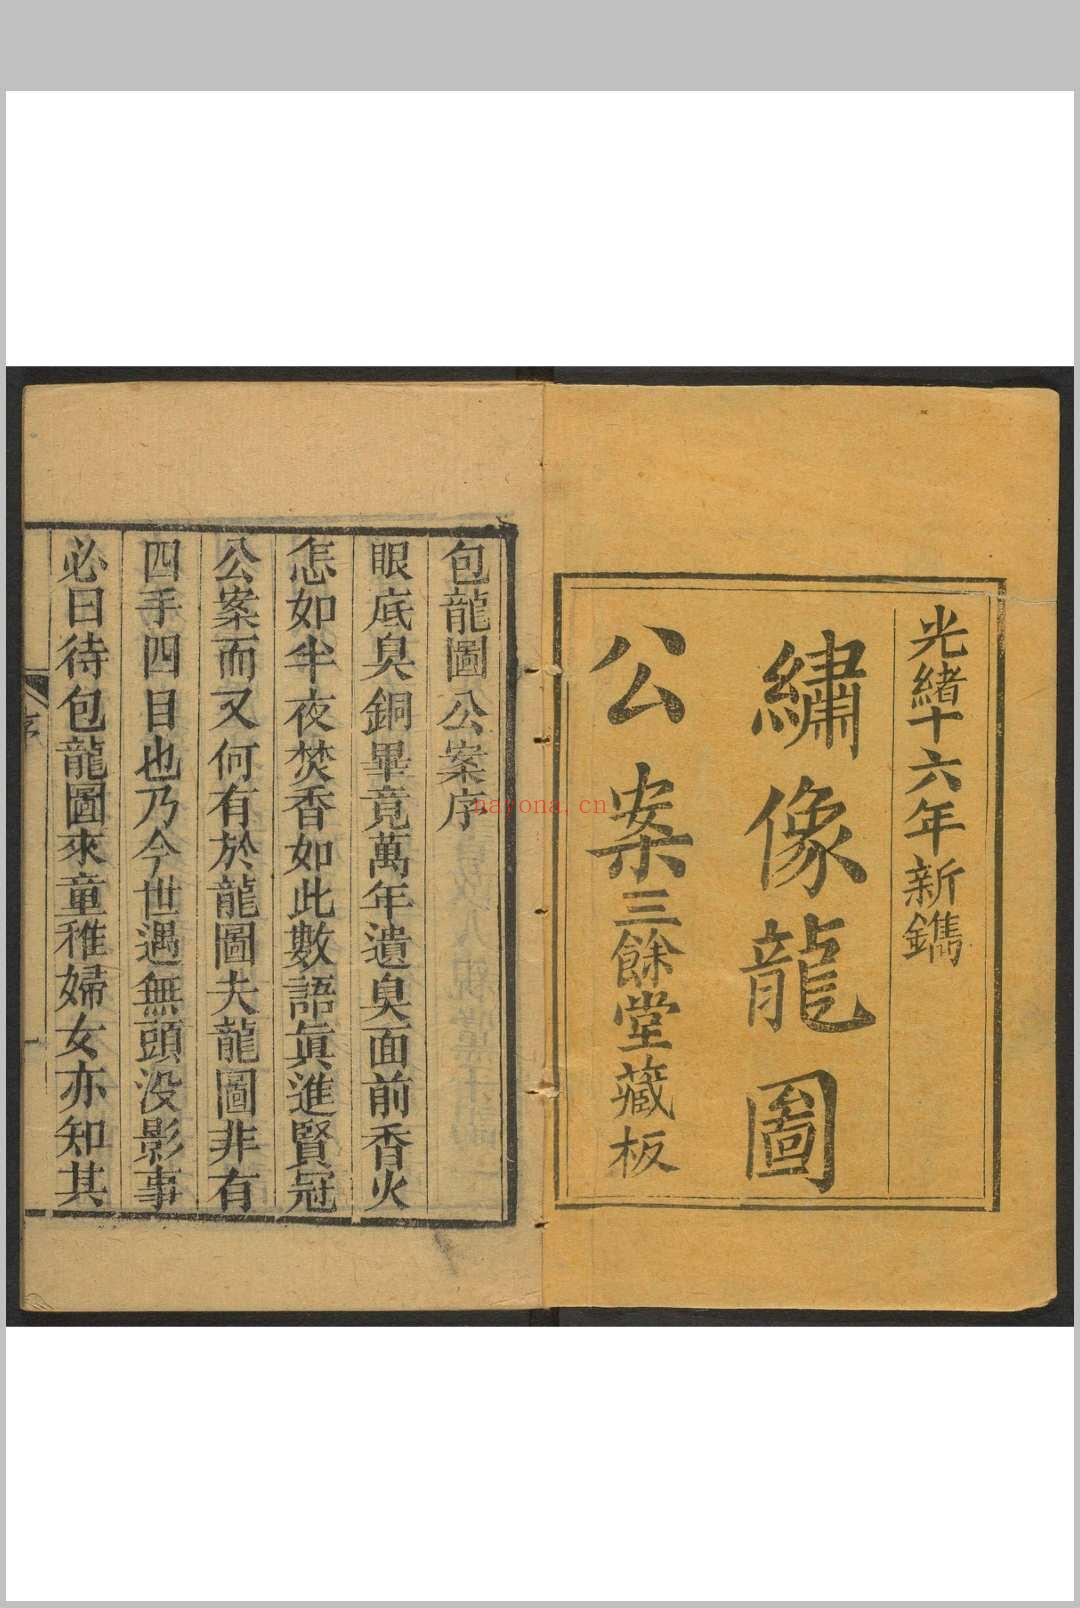 光緒十六年新鐫
繡像龍圖
公案三餘堂藏板
包龍圖公案序
眼底臭銅畢竟萬年遺臭面前香火
怎如半夜焚香如此數語眞進賢冠
公案而又何有於龍圖夫龍圖非有
四手四目也乃今世遇無頭没影事
必曰待包龍圖來童稚婦女亦知其
序
一
nayona.cn